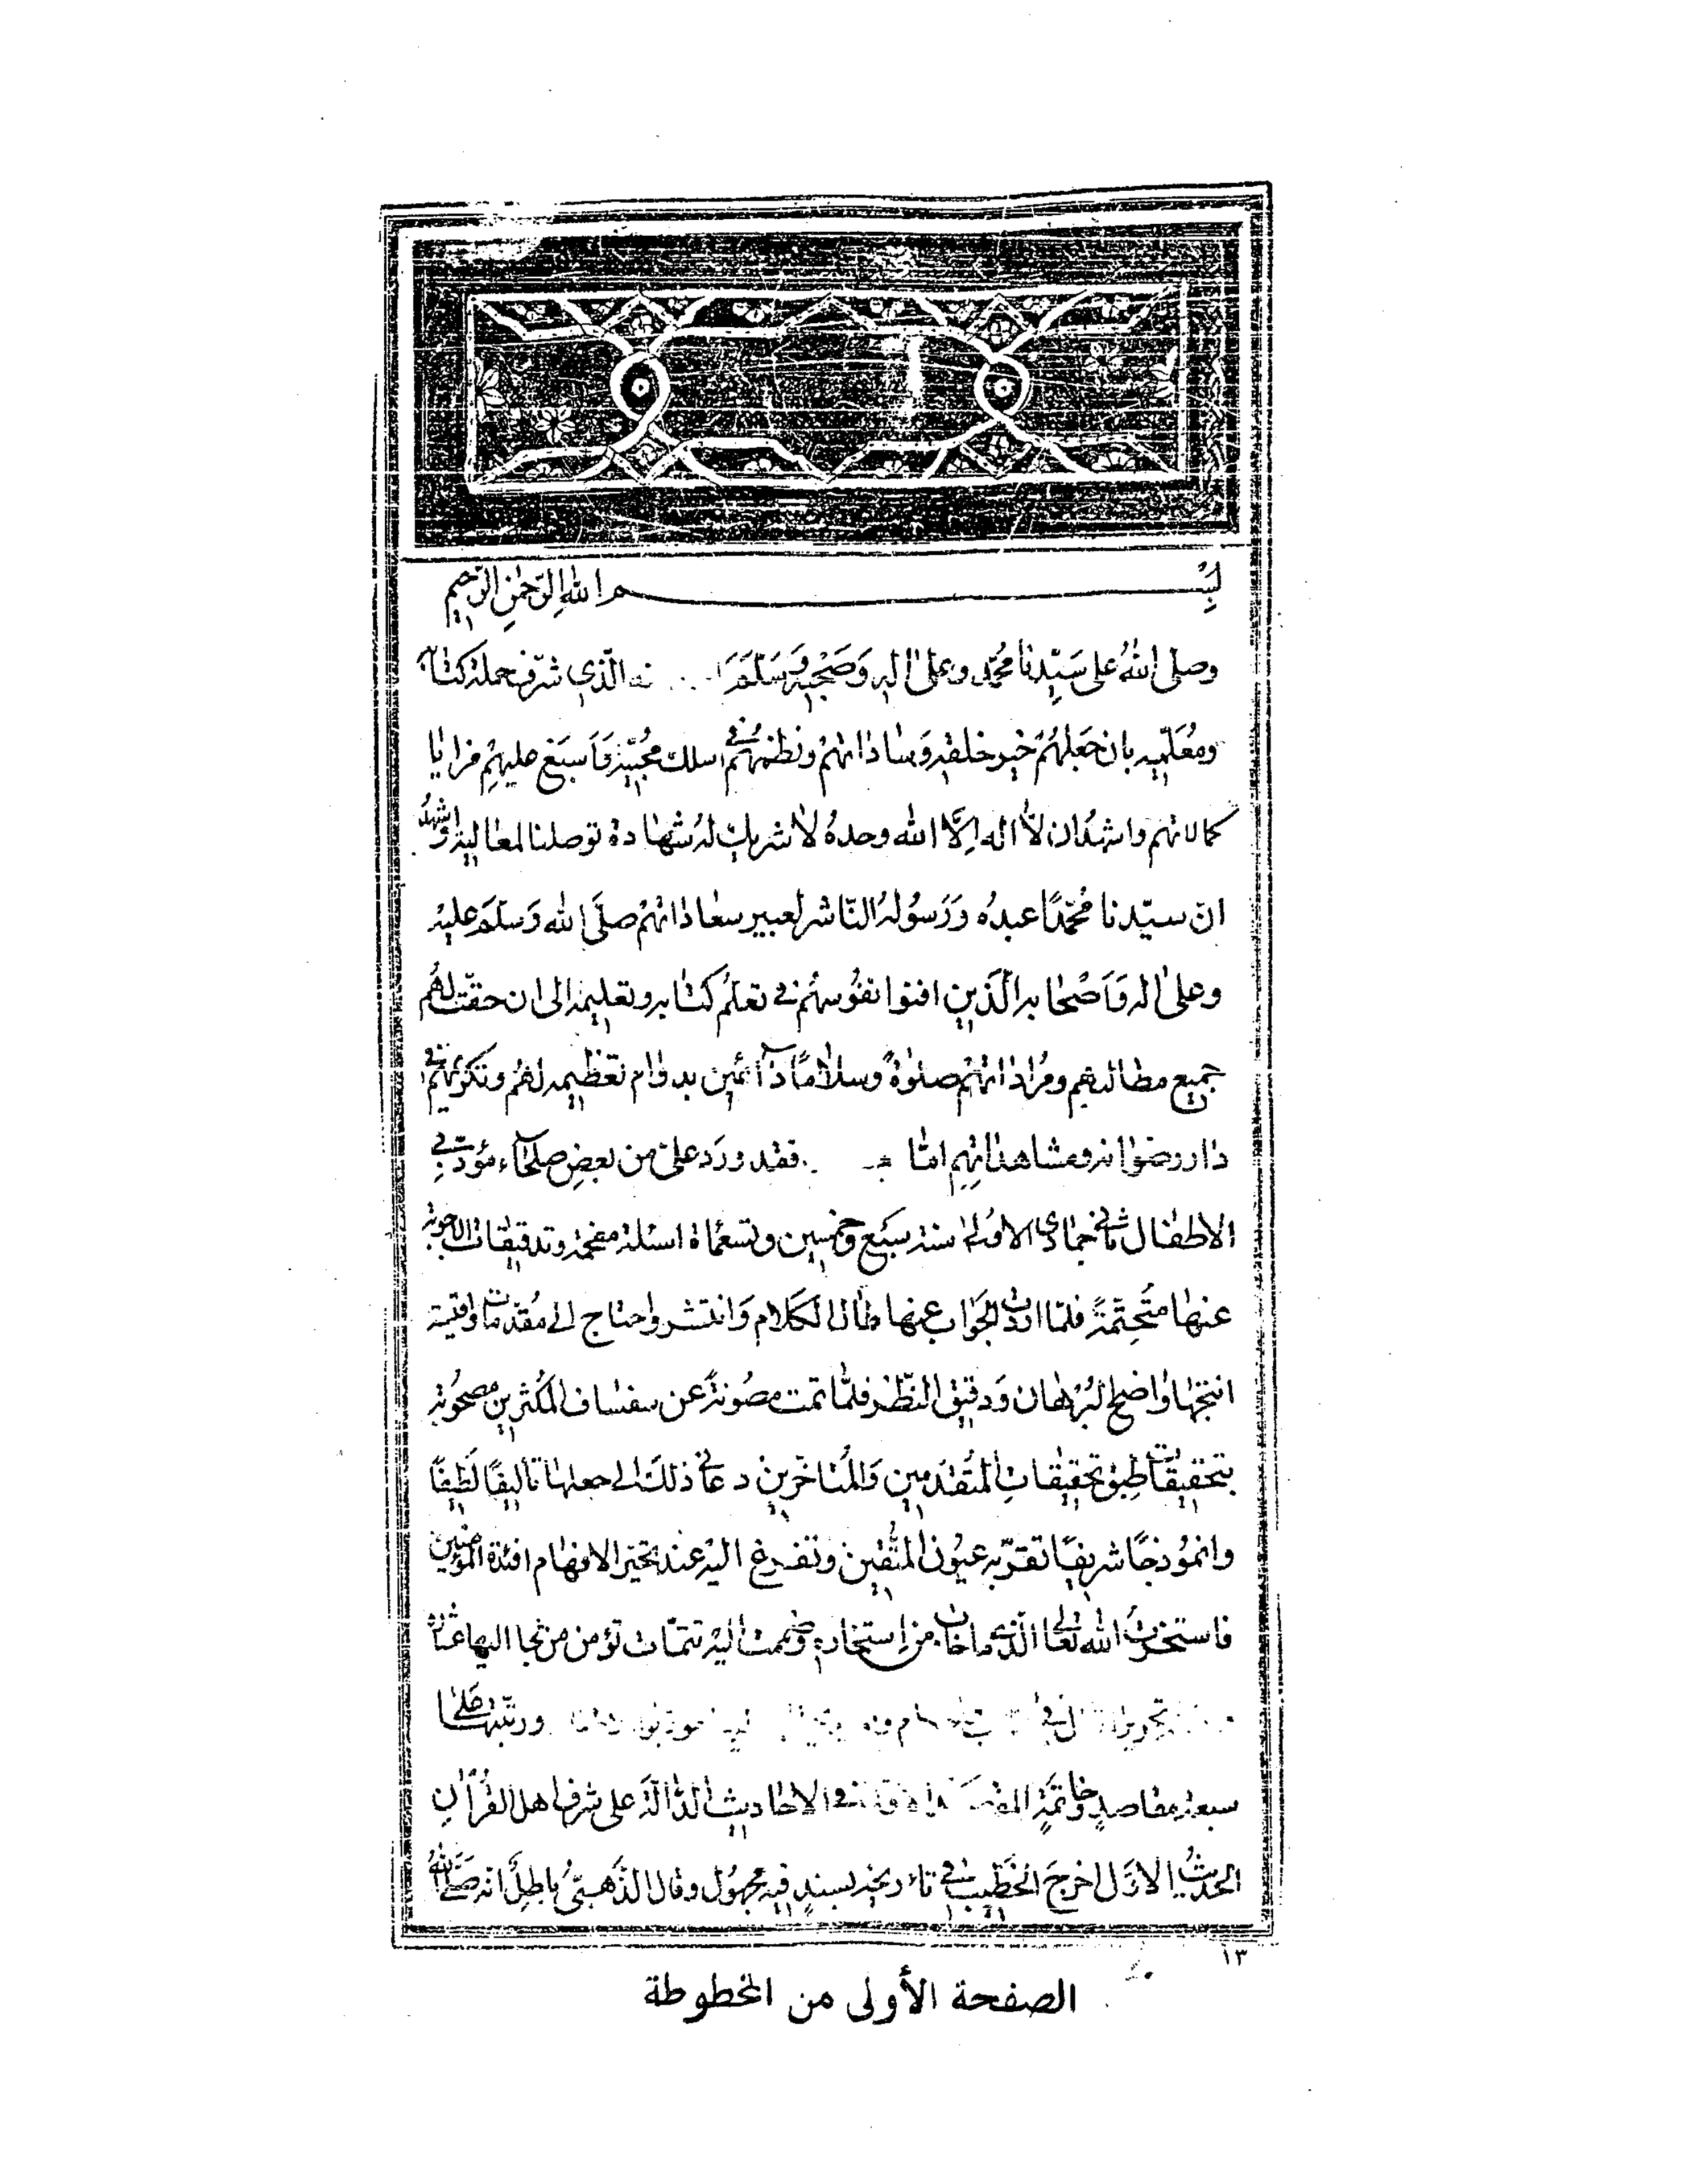 بسم الله الرحمن الرحيم
وصلى الله على سيدنا محمد وعلى اله وصحبه وسلم الذي شرف حملة كتابه
ومعلميه بان جعلهم خير خلقه وساداتهم ونظمهم في سلك محبيه واسبغ عليهم مزايا
كمالاتهم واشهد ان لا اله الا الله وحده لا شريك له شهادة توصلنا لمعاليه واشهد
ان سيدنا محمدا عبده ورسوله الناشر لعبير سعاداتهم صلى الله وسلم عليه
وعلى اله واصحابه الذين افنوا نفوسهم في تعلم كتابه وتعليمه الى ان حققت لهم
جميع مطالبهم ومراداتهم صلوة وسلاما دآئمين بدوام تعظيمه لهم وتكريمهم في
دار رضوانه ومشاهداتهم اما فقد ورد علي من بعض صلحآء مؤدبي
الاطفال ثاني جمادى الاولى سنة سبع وخمسين وتسعماة اسئلة مفحمة وتدقيقات الاجوبة
عنها متحتمة فلما اردت الجواب عنها طال الكلام وانتشر واحتاج الى مقدمات واقيسة
انتجها واضح البرهان ودقيق النظر فلما تمت مصونة عن سفساف المكثرين مصحوبة
بتحقيقات طبق تحقيقات المتقدمين والمتاخرين دعاني ذلك الى جعلها تاليفا لطيفا
وانموذجا شريفا تقر به عيون المتقين وتفزع اليه عند تحير الافهام افئدة المؤمنين
فاستخرت الله تعالى الذي ما خاب من استخاره وضممت اليه تتمات تؤمن من نجا اليها عثاره
ورتبتها على
سبعة مقاصد وخاتمة في الاحاديث الدالة على شرف اهل القرآن
الحديث الاول اخرج الخطيب في تاريخه بسند فيه مجهول وقال الذهبي باطل انه صلى الله
١٣
الصفحة الأولى من المخطوطة